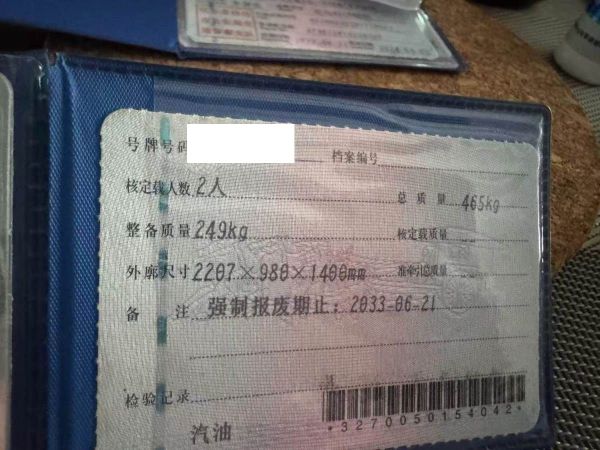 号牌号码
档案编号
核定载人数 2人 总质量 465kg
整备质量 249kg 核定载质量 --
外廓尺寸 2207×980×1400mm 准牵引总质量 --
备注 强制报废期止：2033-06-21
检验记录
*3270050154042*
汽油